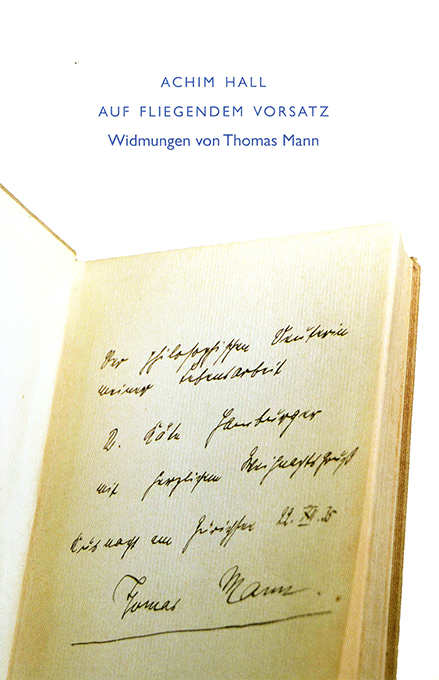 ACHIM HALL
AUF FLIEGENDEM VORSATZ
Widmungen von Thomas Mann
Der philosophischen Deuterin
meiner Lebensarbeit
D. Käte Hamburger
mit herzlichem Weihnachtsgruß
Küsnacht am Zürichsee 22. XII. 35
Thomas Mann.